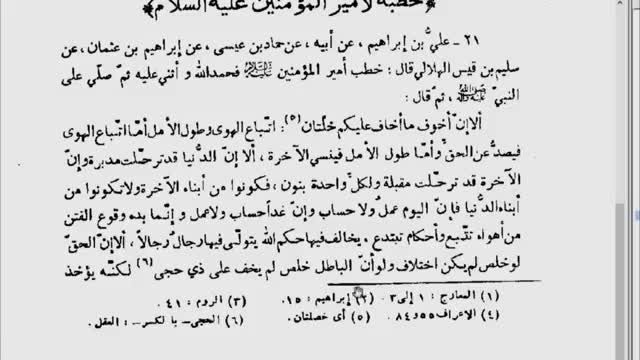 ﴿خطبة لأمير المؤمنين عليه السلام﴾
٢١ ـ عليُّ بن إبراهيم ، عن أبيه ، عن حماد بن عيسى ، عن إبراهيم بن عثمان ، عن
سليم بن قيس الهلالي قال : خطب أمير المؤمنين عليه السلام فحمد الله و أثنى عليه ثمّ صلّى على
النبيّ صلى الله عليه وآله ، ثمّ قال :
ألا إنّ أخوف ما أخاف عليكم خلّتان (٥) : اتّباع الهوى وطول الأمل أمّا اتّباع الهوى
فيصدُّ عن الحقّ وأمّا طول الأمل فينسي الآخرة ، ألا إنّ الدُّنيا قد ترحّلت مدبرة وإنّ
الآخرة قد ترحّلت مقبلة ولكلّ واحدة بنون ، فكونوا من أبناء الآخرة ولا تكونوا من
أبناء الدُّنيا فإنّ اليوم عملٌ ولا حساب وإنّ غداً حساب ولا عمل و إنّما بدء وقوع الفتن
من أهواء تتّبع وأحكام تبتدع ، يخالف فيها حكم الله يتولّى فيها رجالٌ رجالاً ، ألا إنّ الحقّ
لو خلص لم يكن اختلاف ولو أنّ الباطل خلص لم يخف على ذي حجى (٦) لكنّه يؤخذ
(١) المعارج : ١ إلى ٣ . (٢) إبراهيم : ١٥ . (٣) الروم : ٤١ .
(٤) الاعراف ٥٥ و ٨٤ . (٥) أى خصلتان . (٦) الحجى ـ بالكسر ـ : العقل .